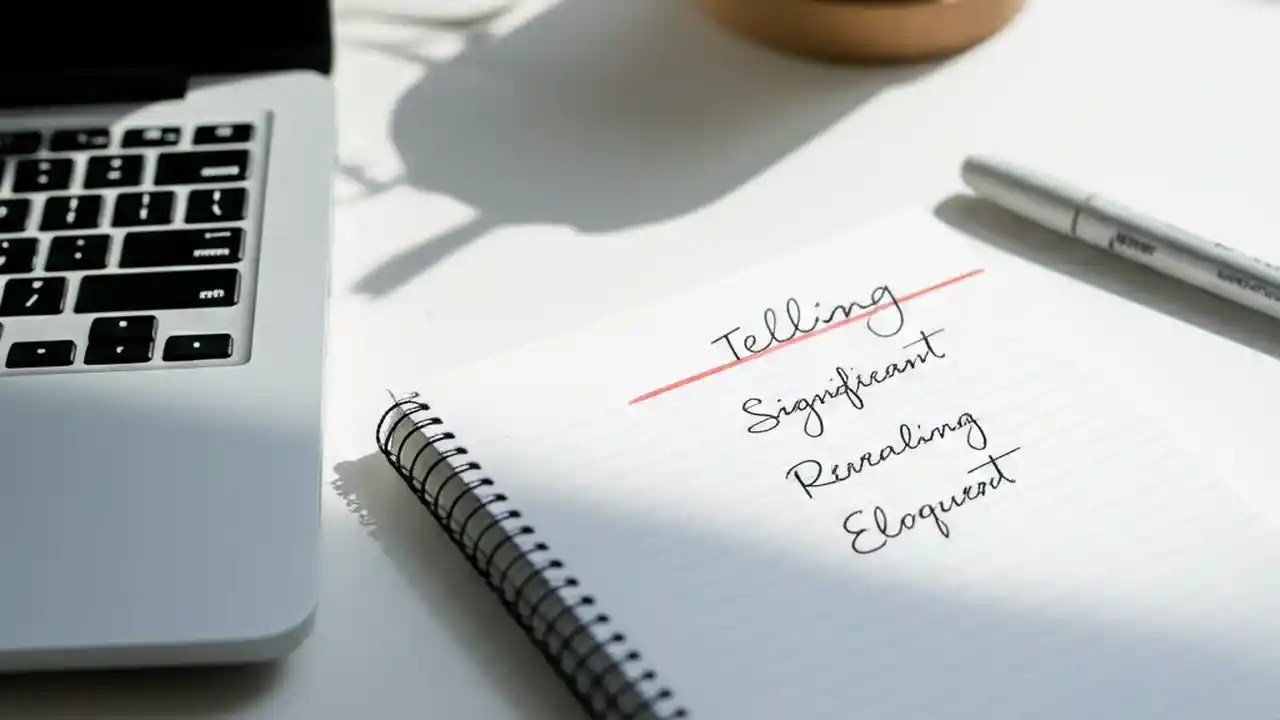 Telling
Significant
Revealing
Eloquent